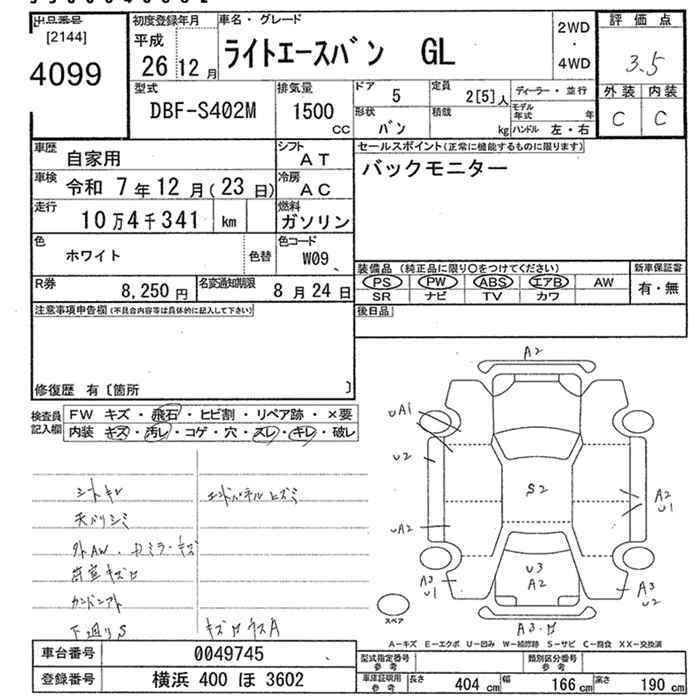 出品番号
[2144]
4099
初度登録年月
平成
26 12 月
車名・グレード
ライトエースバン GL
2WD
・
4WD
評価点
3.5
外装 内装
C C
型式
DBF-S402M
排気量
1500
CC
ドア
5
定員
2[5]人
ディーラー・並行
モデル年式 年
形状
バン
積載
kg
ハンドル 左・右
車歴
自家用
シフト
AT
車検
令和 7年12月(23日)
冷房
AC
走行
10万4千341 km
燃料
ガソリン
色
ホワイト
色替
色コード
W09
セールスポイント(正常に機能するものに限ります)
バックモニター
装備品 (純正品に限り○をつけてください)
新車保証書
PS PW ABS エアB AW
有・無
SR ナビ TV カワ
R券
8,250円
名変通知期限
8月24日
後日品
注意事項申告欄(不具合内容等は具体的に記入して下さい)
修復歴 有〔箇所 〕
検査員記入欄
FW キズ・飛石・ヒビ割・リペア跡・×要
内装 キズ・汚レ・コゲ・穴・スレ・キレ・破レ
シートキレ
エンドパネルヒズミ
天バリシミ
外AW、ドミラーキズ
下廻りS
A2
uA1
u2
S2
A2
u1
uA2
u3
A2
A3
u1
A3
u2
スペア
A-キズ E-エクボ U-凹み W-補修跡 S-サビ C-腐食 XX-交換済
車台番号
0049745
型式指定番号
参考
類別区分番号
参考
登録番号
横浜 400 ほ 3602
車庫証明用
参考
長さ 404 cm
幅 166 cm
高さ 190 cm